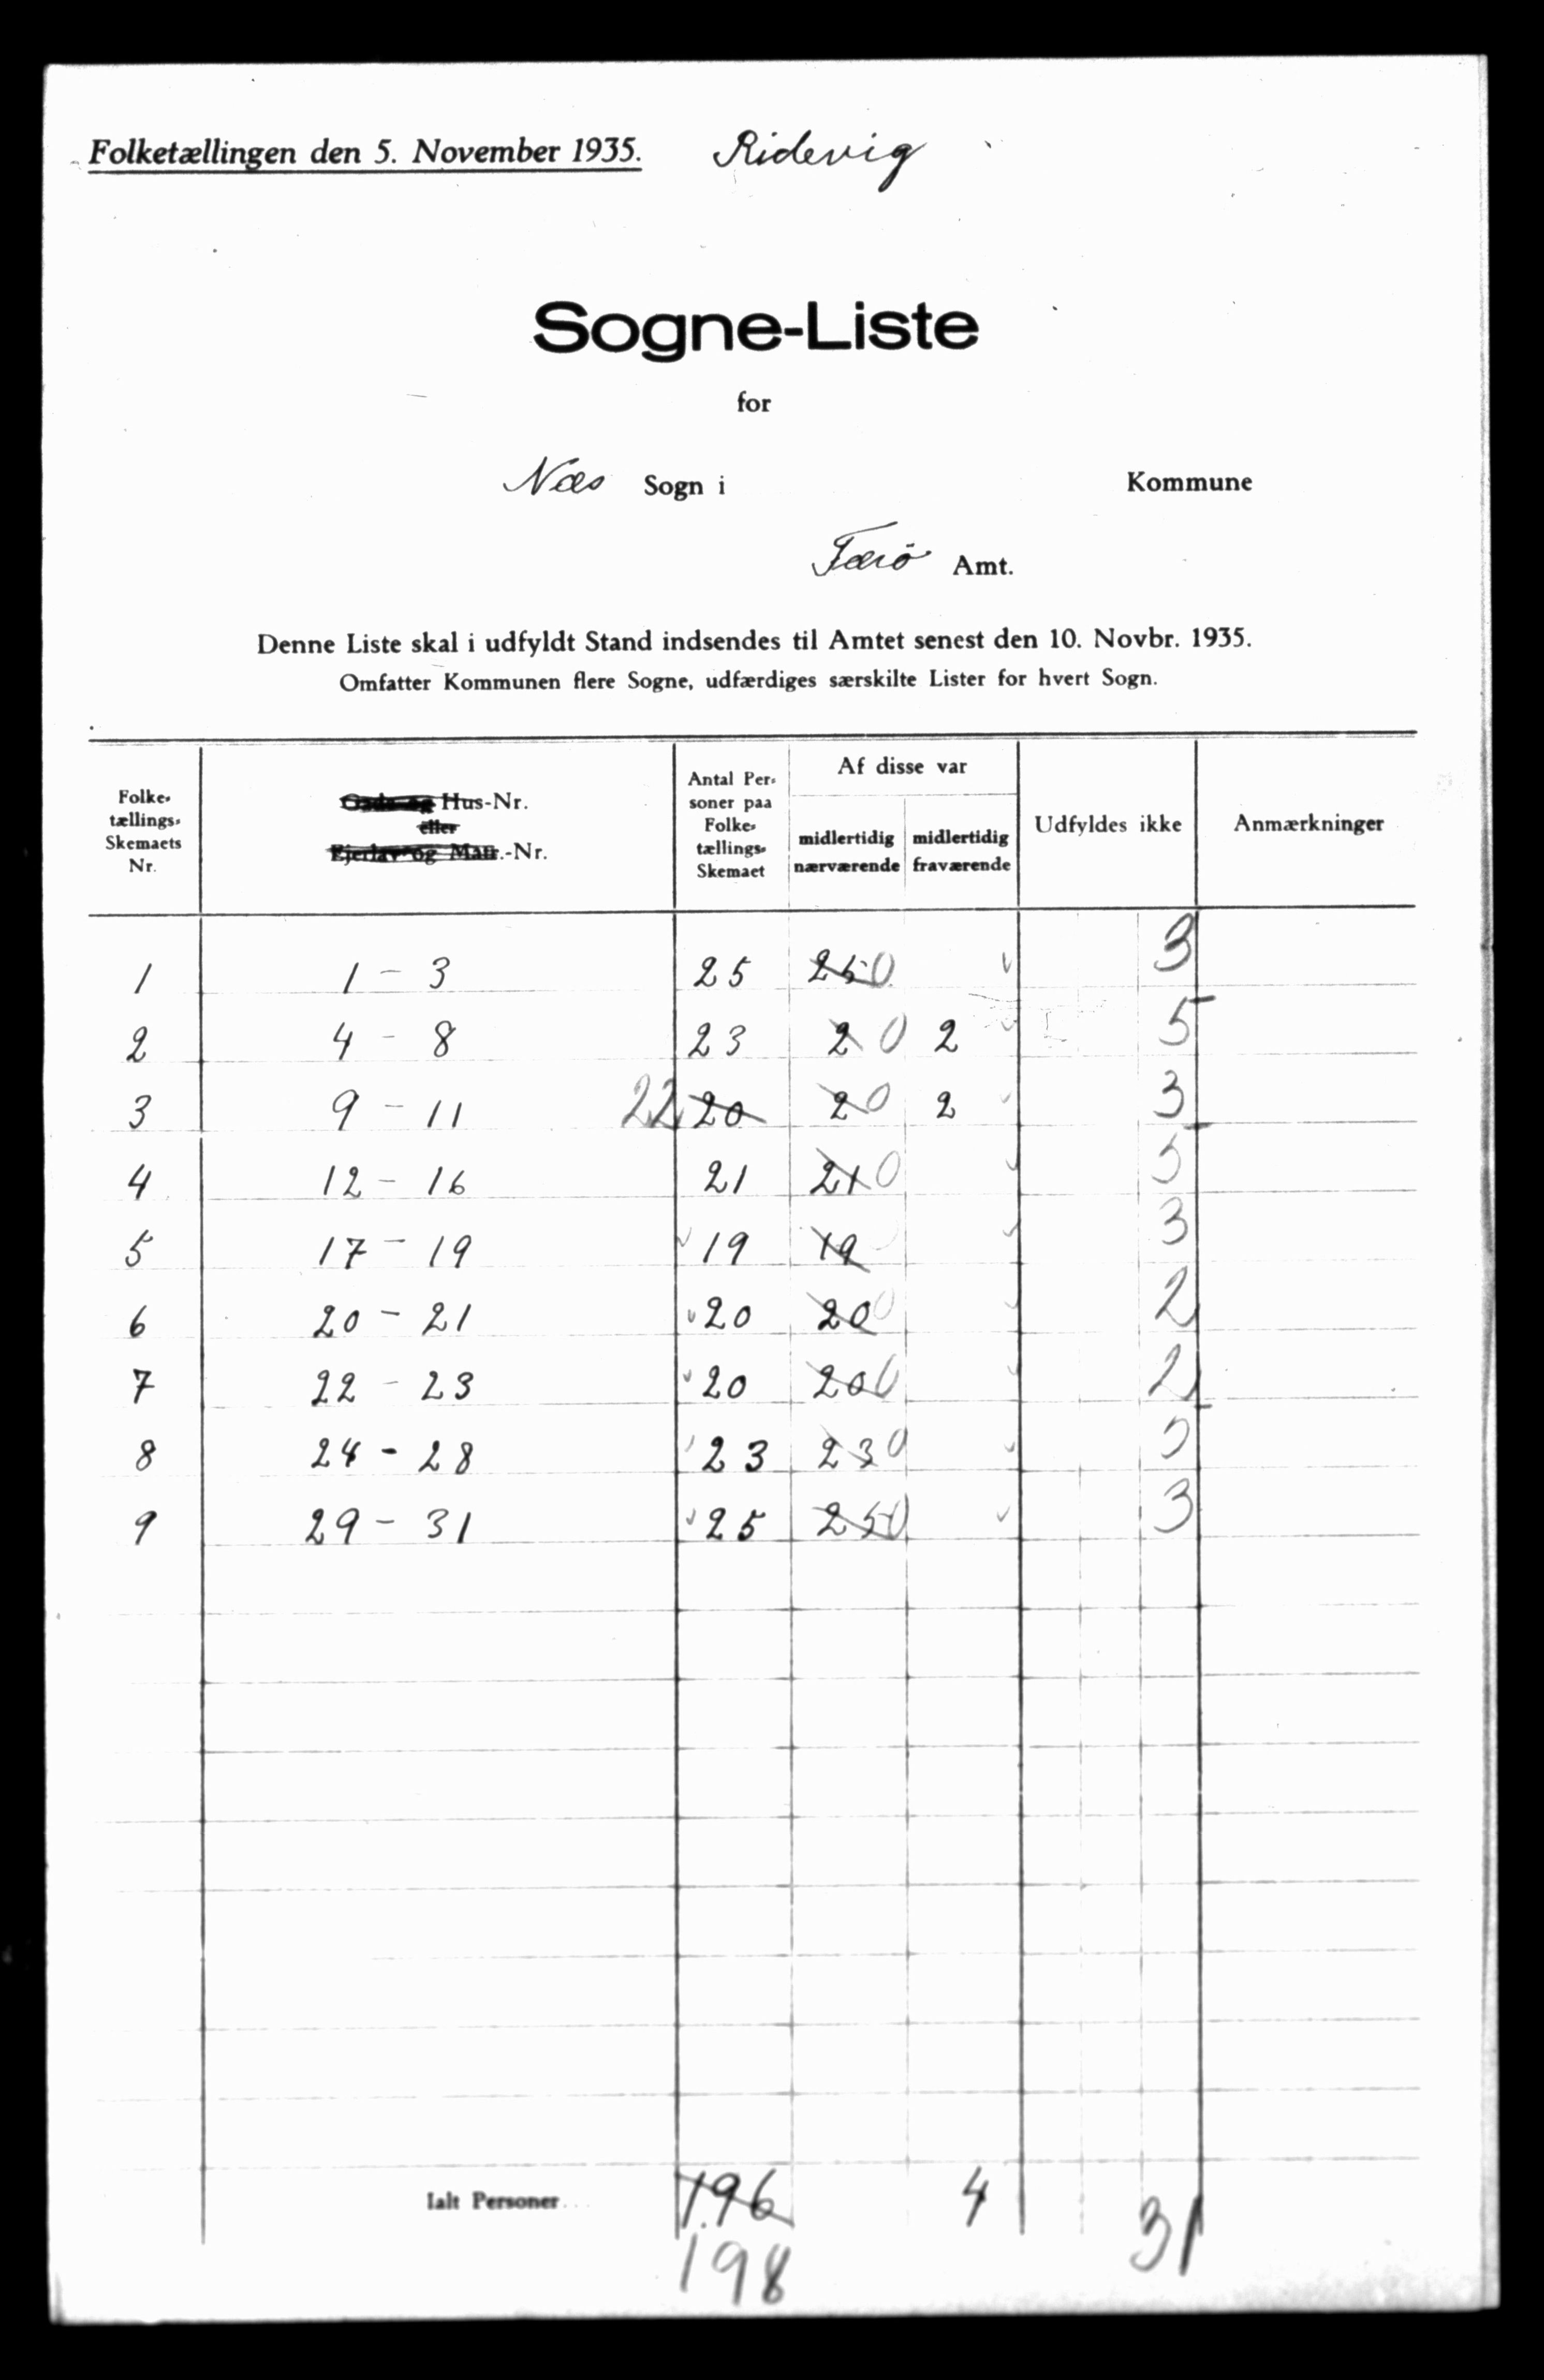 Folketællingen den 5. November 1935. Ridevig
Sogne-Liste
for
Næs Sogn i Kommune
Færö Amt.
Denne Liste skal i udfyldt Stand indsendes til Amtet senest den 10. Novbr. 1935.
Omfatter Kommunen flere Sogne, udfærdiges særskilte Lister for hvert Sogn.
Folke-
tællings-
Skemaets
Nr.
Gade og Hus-Nr.
eller
Ejerlav og Matr.-Nr.
Antal Per-
soner paa
Folke-
tællings-
Skemaet
Af disse var
midlertidig
nærværende
midlertidig
fraværende
Udfyldes ikke
Anmærkninger
1 1 - 3 25 25 0 3
2 4 - 8 23 2 0 2 5
3 9 - 11 22 20 2 0 2 3
4 12 - 16 21 21 0 5
5 17 - 19 19 19 3
6 20 - 21 20 20 0 2
7 22 - 23 20 20 0 2
8 24 - 28 23 23 0 5
9 29 - 31 25 25 0 3
Ialt Personer 196 4 31
198